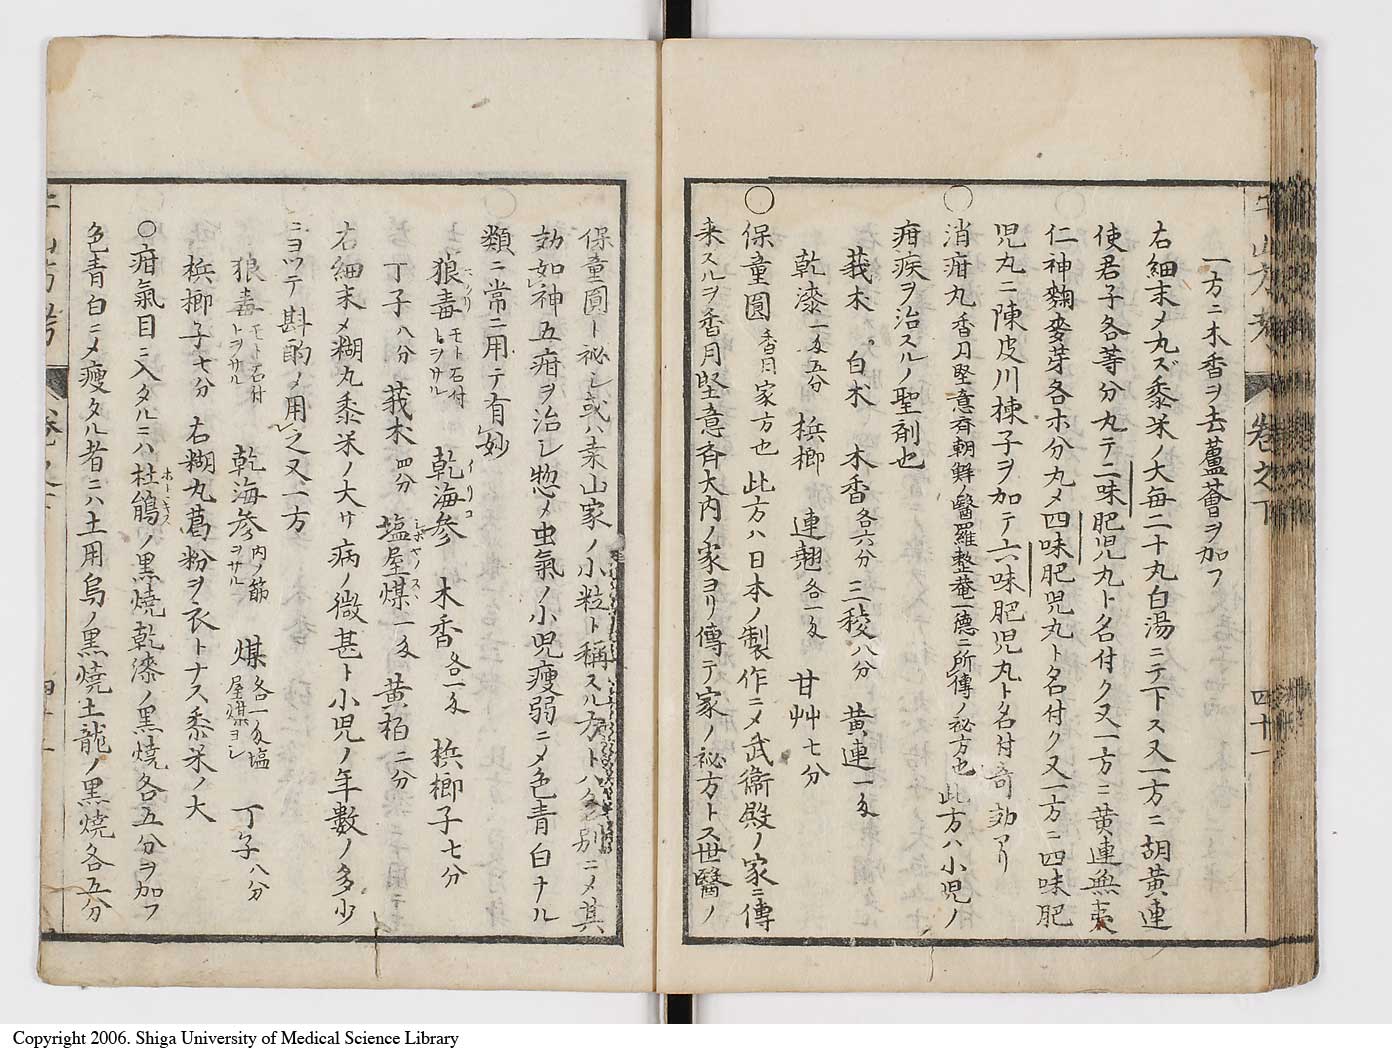 一方ニ木香ヲ去蘆薈ヲ加フ
右細末メ丸ズ黍米ノ大毎二十丸白湯ニテ下ス又一方ニ胡黄連
使君子各等分丸テ二味肥児丸ト名付ク又一方ニ黄連無夷
仁神麴麥芽各ホ分丸メ四味肥児丸ト名付ク又一方ニ四味肥
児丸ニ陳皮川楝子ヲ加テ六味肥児丸ト名付奇効アリ
○消疳丸香月堅意斎朝鮮ノ醫羅整菴一德ニ所傳ノ祕方也此方ハ小児ノ
疳疾ヲ治スルノ聖剤也
莪朮 白朮 木香各六分 三稜八分 黄連一匁
乾漆一匁五分 梹榔 連翹各一匁 甘艸七分
○保童圓香月家方也此方ハ日本ノ製作ニメ武衛殿ノ家ニ傳
来スルヲ香月堅意斉大内ノ家ヨリ傳テ家ノ祕方トス世醫ノ
卷之下
四十一
保童圓ト祕シ或ハ桒山家ノ小粒ト稱スル方トハ各別ニメ其
効如神五疳ヲ治シ惣メ虫氣ノ小児瘦弱ニメ色青白ナル
類ニ常ニ用テ有妙
狼毒モト石付トヲサル 乾海参イリコ 木香各一匁 梹榔子七分
丁子八分 莪朮四分 塩屋煤シホヤノスヽ一匁 黄栢二分
右細末メ糊丸黍米ノ大サ病ノ微甚ト小児ノ年數ノ多少
ニヨツテ斟酌メ用之又一方
狼毒モト石付トヲサル 乾海参内ノ筋ヲサル 煤各一匁塩屋煤ヨシ 丁子八分
梹榔子七分 右糊丸葛粉ヲ衣トナス黍米ノ大
○疳氣目ニ入タルニハ杜鵑ノ黒焼乾漆ノ黒焼各五分ヲ加フ
色青白ニメ瘦タル者ニハ土用烏ノ黒焼土龍ノ黒焼各五分